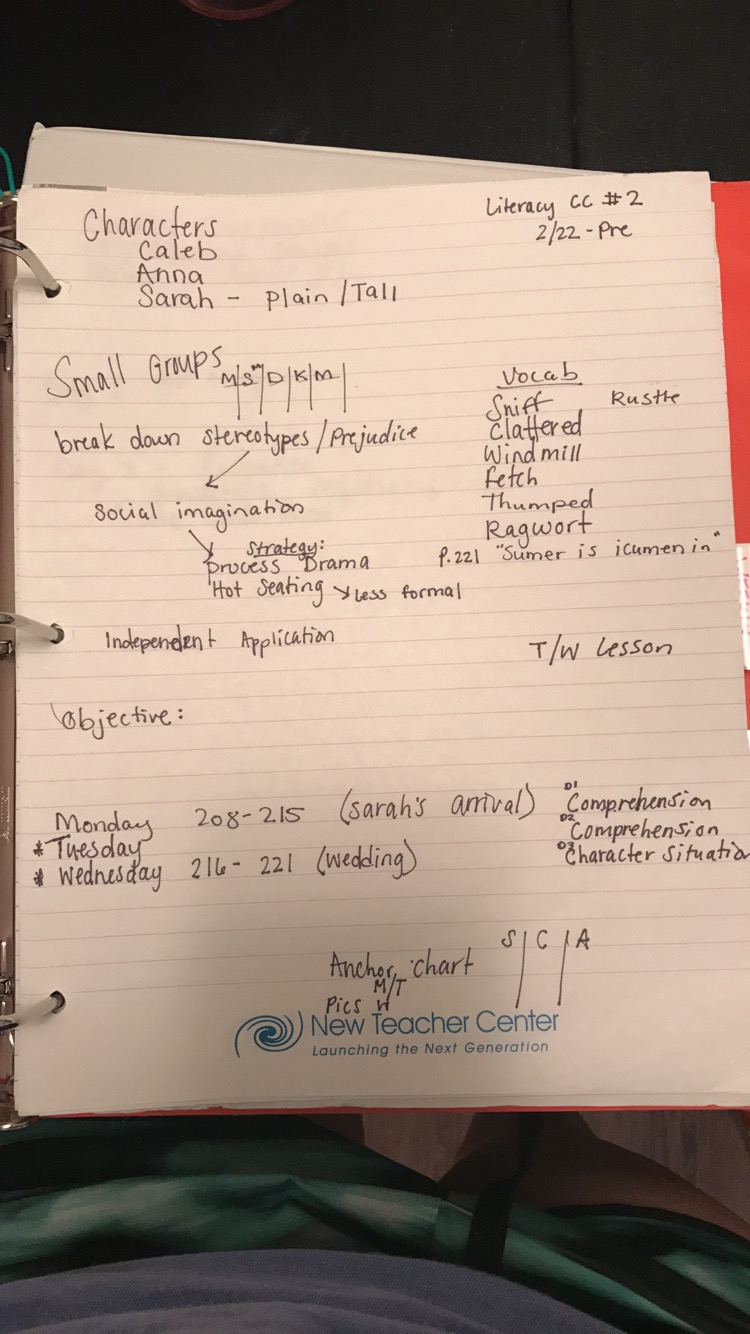 Literacy CC #2
2/22 - Pre
Characters
Caleb
Anna
Sarah - Plain/Tall
Small Groups M|S|D|K|M|
break down stereotypes/Prejudice
Social imagination
Strategy:
Process Drama
Hot Seating less formal
Independent Application
Vocab
Sniff Rustle
Clattered
Windmill
Fetch
Thumped
Ragwort
P.221 "Sumer is icumen in"
T/W Lesson
Objective:
Monday 208-215 (Sarah's arrival) D1 Comprehension
* Tuesday D2 Comprehension
* Wednesday 216-221 (wedding) D3 Character Situation
Anchor chart S | C | A
M/T
Pics W
New Teacher Center
Launching the Next Generation